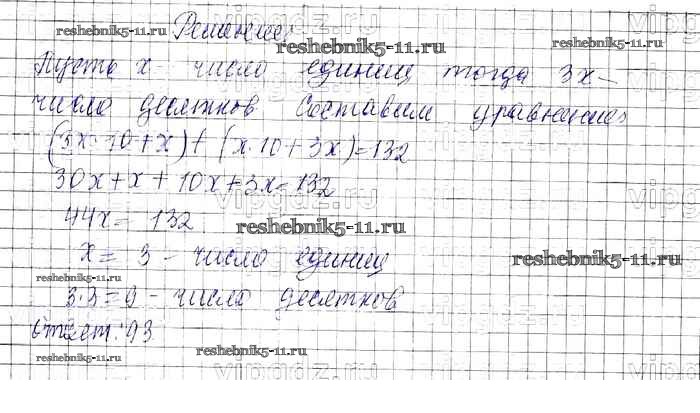 Решение:
Пусть x – число единиц тогда 3x –
число десятков Составим уравнение:
(3x·10+x)+(x·10+3x)=132
30x+x+10x+3x=132
44x=132
x=3 – число единиц
3·3=9 – число десятков
Ответ: 93
reshebnik5-11.ru
reshebnik5-11.ru
reshebnik5-11.ru
reshebnik5-11.ru
reshebnik5-11.ru
reshebnik5-11.ru
reshebnik5-11.ru
reshebnik5-11.ru
vipgdz.ru
vipgdz.ru
vipgdz.ru